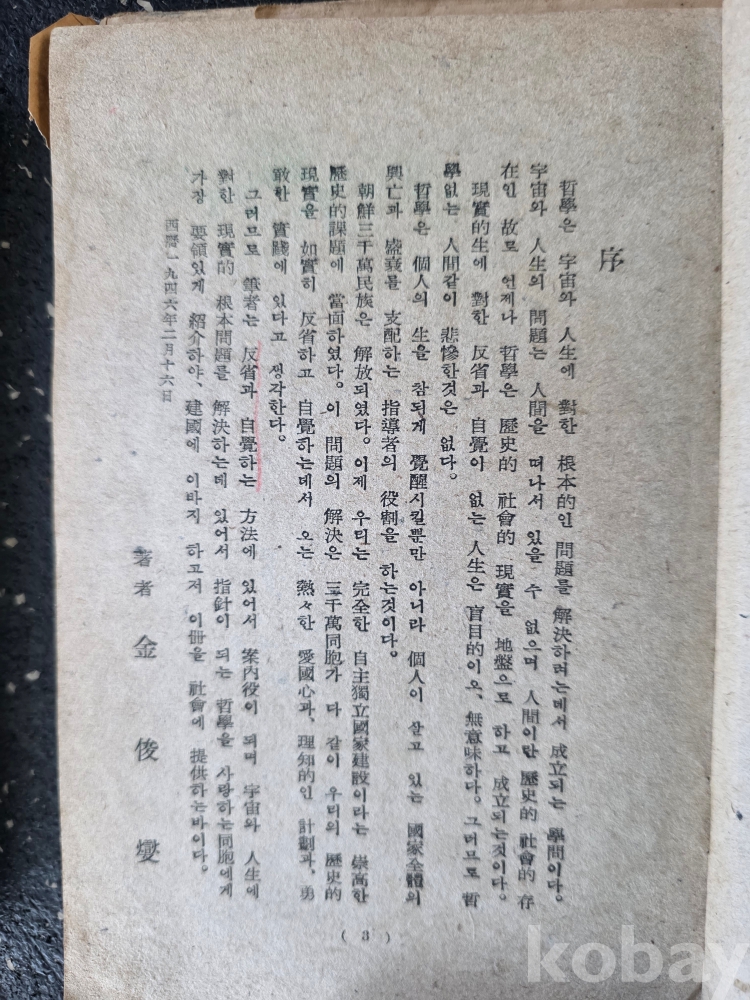 序
哲學은 宇宙와 人生에 對한 根本的인 問題를 解決하려는데서 成立되는 學問이다。
宇宙와 人生의 問題는 人間을 떠나서 있을 수 없으며 人間이란 歷史的 社會的 存
在인 故로 언제나 哲學은 歷史的 社會的 現實을 地盤으로 하고 成立되는것이다。
現實的生에 對한 反省과 自覺이 없는 人生은 盲目的이오、無意味하다。그러므로 哲
學없는 人間같이 悲慘한것은 없다。
哲學은 個人의 生을 참되게 覺醒시킬뿐만 아니라 個人이 살고 있는 國家全體의
興亡과 盛衰를 支配하는 指導者의 役割을 하는것이다。
朝鮮三千萬民族은 解放되였다。이제 우리는 完全한 自主獨立國家建設이라는 崇高한
歷史的課題에 當面하였다。이 問題의 解決은 三千萬同胞가 다 같이 우리의 歷史的
現實을 如實히 反省하고 自覺하는데서 오는 熱々한 愛國心과、理知的인 計劃과、勇
敢한 實踐에 있다고 생각한다。
그러므로 筆者는 反省과 自覺하는 方法에 있어서 案內役이 되며 宇宙와 人生에
對한 現實的 根本問題를 解決하는데 있어서 指針이 되는 哲學을 사랑하는同胞에게
가장 要領있게 紹介하야、建國에 이바지 하고저 이冊을 社會에 提供하는바이다。
西曆一九四六年二月十六日
著者 金俊燮
( 3 )
kobay